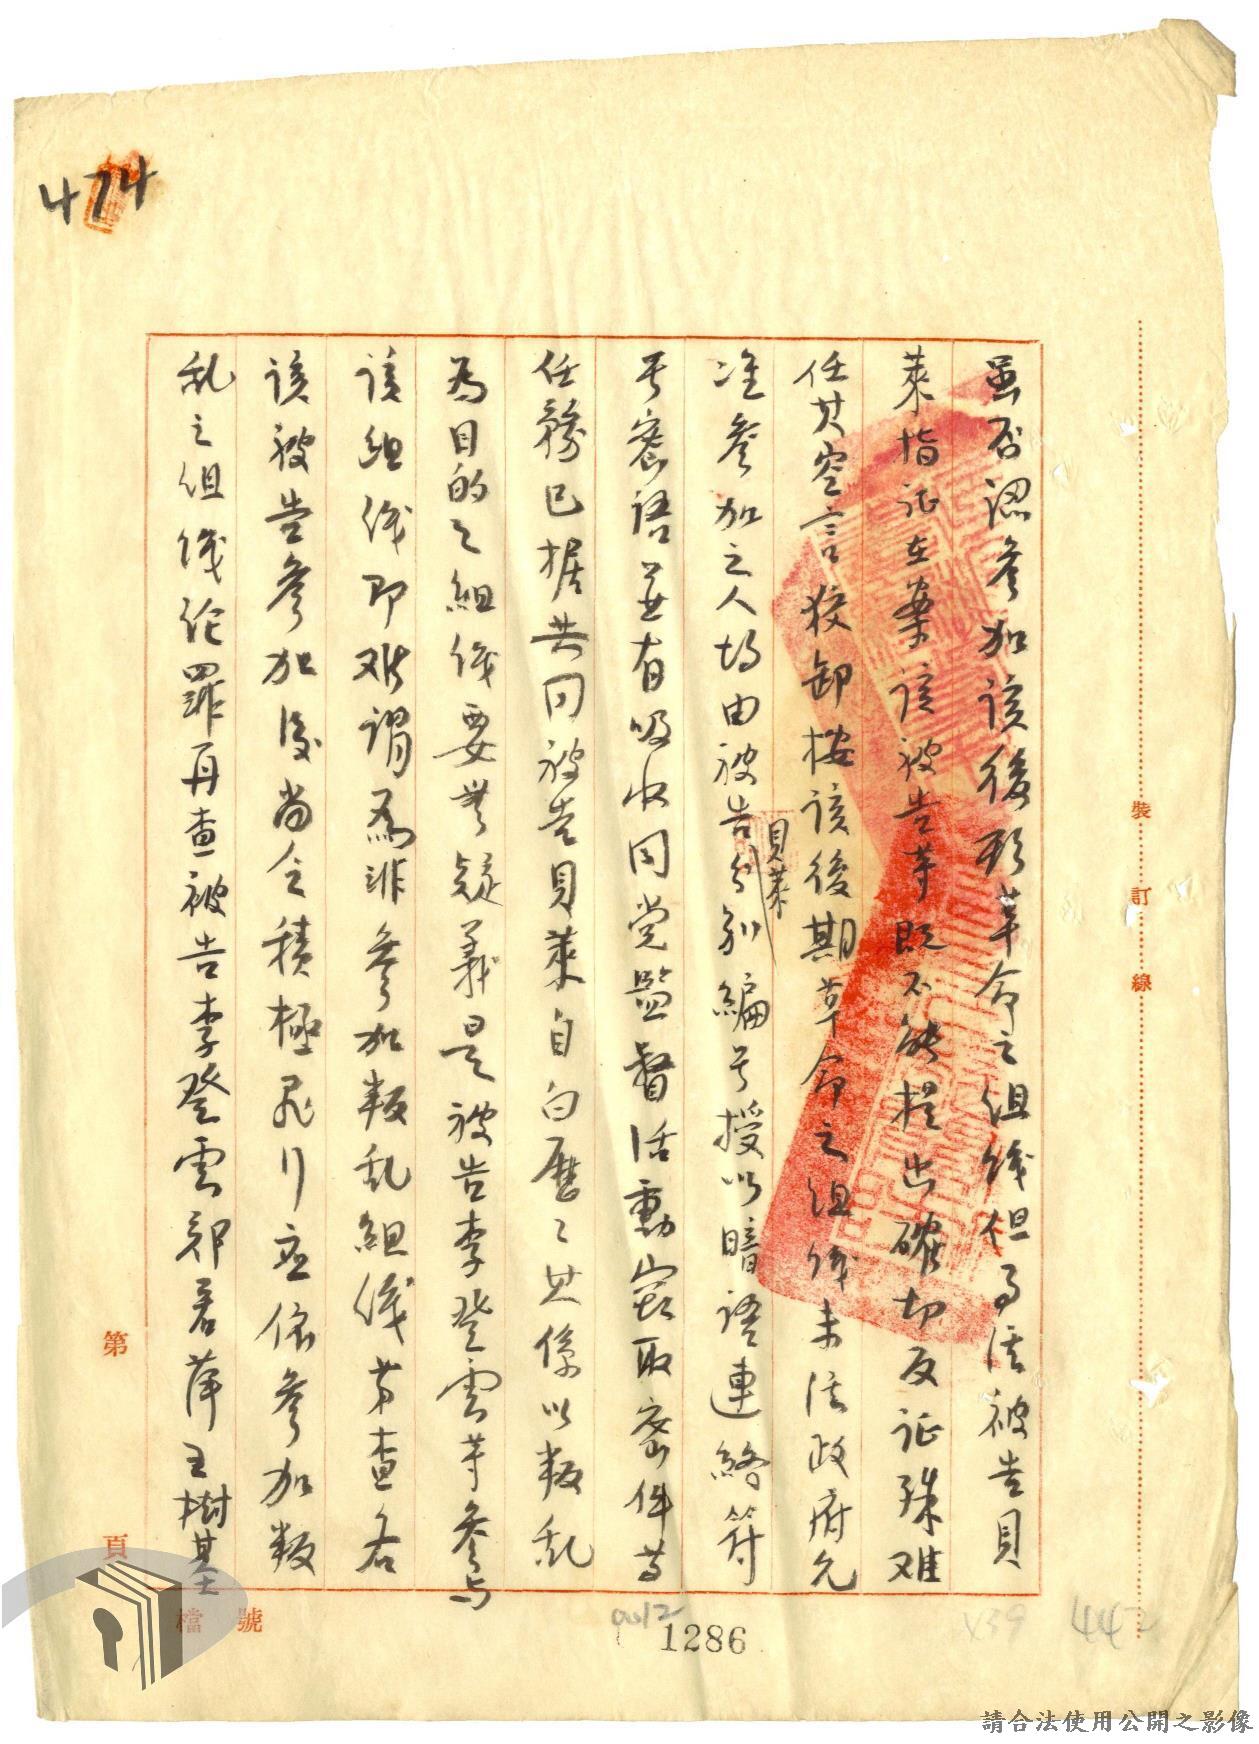 474
虽否認參加該後期革命之組織但有證被告貝
萊指证在案該被告等既不能提出確切反证殊难
任其空言狡卸按該後期革命之組織未经政府允
准參加之人均由被告分别編号授以暗語連絡符
貝萊
号密語並有吸收同党監督活動窃取密件等
任務已据共同被告貝萊自白歷之其係以叛乱
為目的之組織要無疑義是被告李登雲等參与
該組織即难謂為非參加叛乱組織苐查各
該被告參加後尚乏積極罪行应依參加叛
乱之組織论罪再查被告李登雲郑若萍王樹基
裝訂線
第 頁
檔號
0012
1286
439
442
請合法使用公開之影像